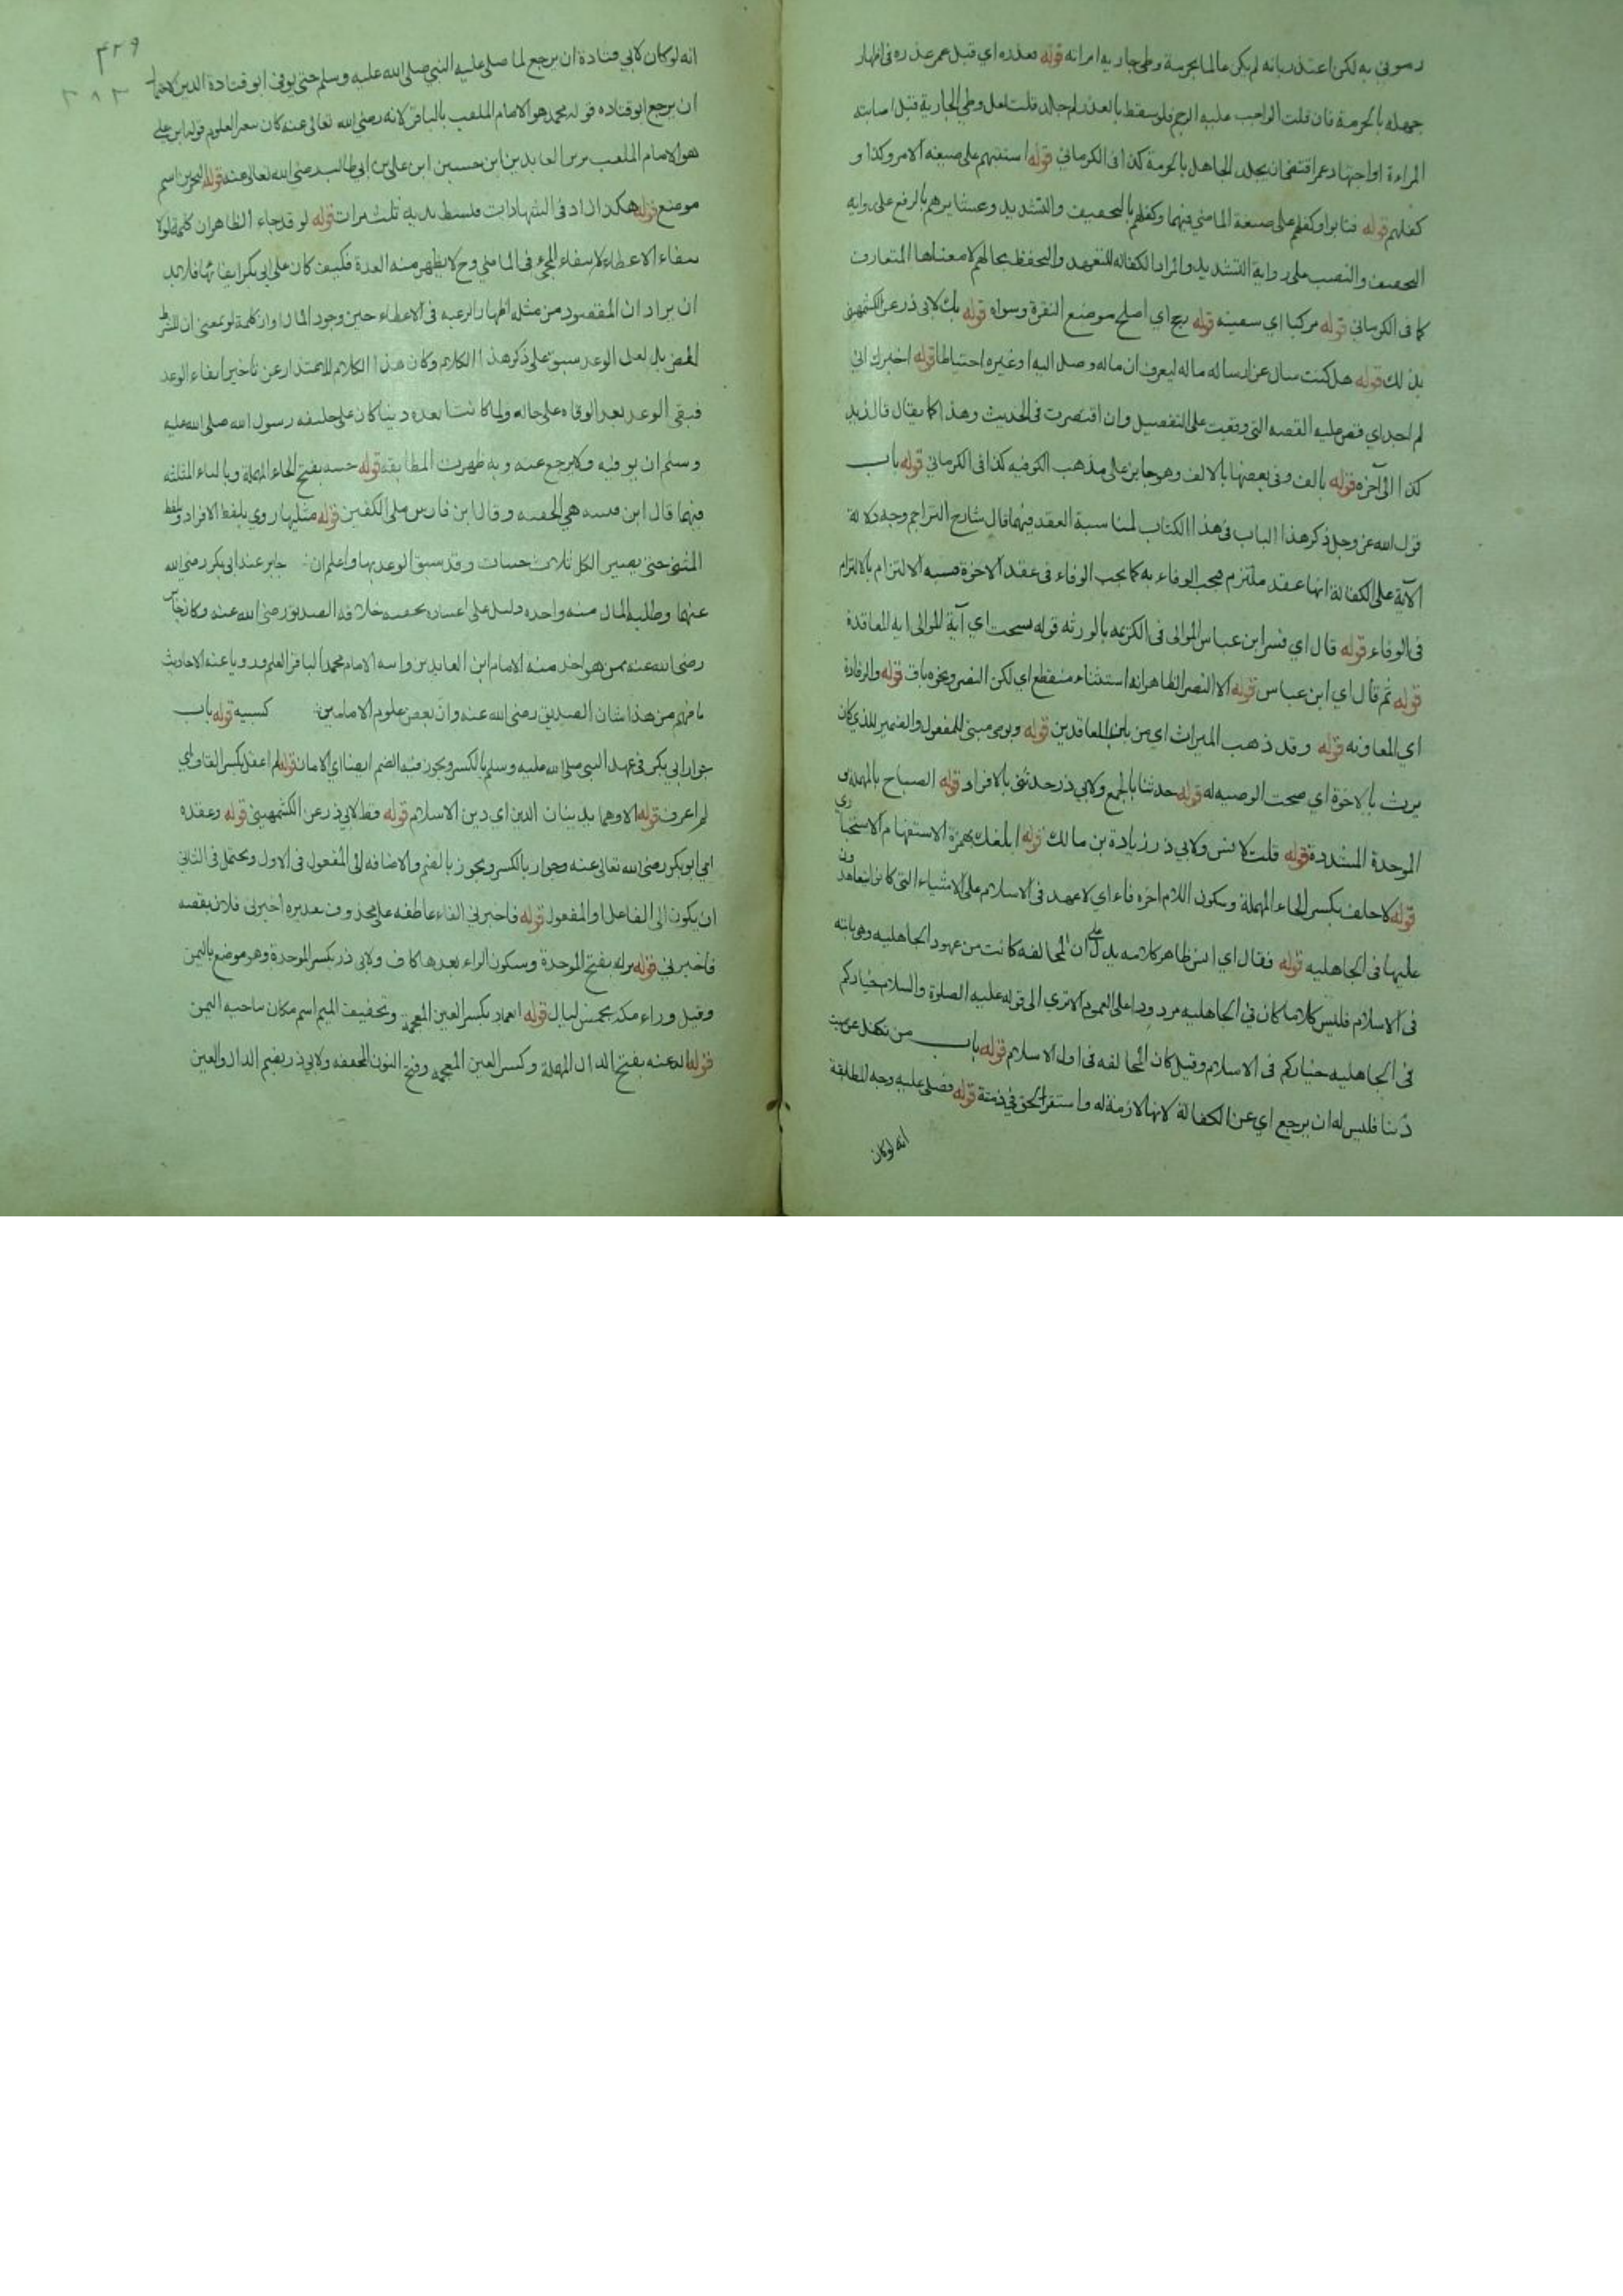 رموني به لكن اعتذر بانه لم يكن عالما بحرمة وطي جارية امرأته قوله فعذره اي قبل عمر عذره في اظهار
جهله بالحرمة فان قلت الواجب عليه الرجم فلو سقط بالعذر لم جلد قلت لعل وطي الجارية قبل اصابته
المراءة او اجتهاد عمر اقتضى ان يجلد الجاهل بالحرمة كذا في الكرماني قوله استتبهم على صيغه الامر وكذا و
كفلهم قوله فتابوا وكفلهم على صيغة الماضي فيهما وكفلهم بالتخفيف والتشديد وعشايرهم بالرفع على روايه
التخفيف والنصب على رواية التشديد والمراد بالكفاله التعهد والتحفظ بحالهم لا معناها المتعارف
كما في الكرماني قوله مركبا اي سفينه قوله زجج اي اصلح موضع النقرة وسواه قوله بك لابي ذر عن الكشميهني
بذلك قوله هل كنت سال عن ارساله ماله ليعرف ان ماله وصل اليه او غيره احتياطا قوله اخبرك اني
لم اجد اي فقص عليه القصه التي وقعت على التفصيل وان اقتصرت في الحديث وهذا كما يقال قال زيد
كذا الى آخره قوله بالف وفي بعضها بالالف وهو جايز على مذهب الكوفيه كذا في الكرماني قوله باب
قول الله عز وجل ذكر هذا الباب في هذا الكتاب لمناسبة العقد فيهما قال شارح التراجم وجه دلالة
الآية على الكفالة انها عقد ملتزم فيجب الوفاء به كما يجب الوفاء في عقد الاخوة فشبه الالتزام بالالتزام
في الوفاء قوله قال اي فسر ابن عباس الموالي في الكريمه بالورثه قوله نسخت اي آية الموالي ايه المعاقدة
قوله ثم قال اي ابن عباس قوله الا النصر الظاهر انه استثناء منقطع اي لكن النصر ونحوه باق قوله والرفادة
اي المعاونه قوله وقد ذهب الميراث اي من بين المعاقدين قوله ويوصى مبني للمفعول والضمير للذي كان
يرث بالاخوة اي صحت الوصيه له قوله حدثنا بالجمع ولابي ذر حدثني بالافراد قوله الصباح بالمهملة و
الموحدة المشددة قوله قلت لانس ولابي ذر زيادة بن مالك قوله ابلغك بهمزة الاستفهام الاستخباري
قوله لا حلف بكسر الحاء المهملة وسكون اللام اخره فاء اي لا عهد في الاسلام على الاشياء التي كانوا يتعاهدون
عليها في الجاهليه قوله فقال اي انس ظاهر كلامه يدل على ان المحالفه كانت من عهود الجاهليه وهي ثابته
في الاسلام فليس كلاما كان في الجاهليه مردودا على العموم الا ترى الى قوله عليه الصلوة والسلام خياركم
في الجاهليه خياركم في الاسلام وقيل كان المحالفه في اول الاسلام قوله باب من تكفل عن ميت
دينا فليس له ان يرجع اي عن الكفالة لانها لازمة له واستقر الحق في ذمته قوله فصلى عليه وجه المطابقة
انه لو كان
٤٢٩
٣٨٢
انه لو كان لابي قتادة ان يرجع لما صلى عليه النبي صلى الله عليه وسلم حتى يوفي ابو قتادة الدين لاحتمال
ان يرجع ابو قتاده قوله محمد هو الامام الملقب بالباقر لانه رضي الله تعالى عنه كان بقر العلوم قوله ابن علي
هو الامام الملقب بزين العابدين ابن حسين ابن علي بن ابي طالب رضي الله تعالى عنه قوله البحرين اسم
موضع قوله هكذا زاد في الشهادات فبسط يديه ثلث مرات قوله لو قد جاء الظاهر ان كلمة لو لا
نتفاء الاعطاء لانتفاء المجيء في الماضي وح لا يظهر منه العدة فكيف كان على ابي بكر ايفائها فلا بد
ان يراد ان المقصود من مثله اظهار الرغبه في الاعطاء حين وجود المال وان كلمة لو بمعنى ان للشرط
المحض بل لعل الوعد سبق على ذكر هذا الكلام وكان هذا الكلام للاعتذار عن تاخير ايفاء الوعد
فبقى الوعد بعد الوفاة على حاله ولما كانت العدة دينا كان على خليفه رسول الله صلى الله عليه
وسلم ان يوفيه ولا يرجع عنه وبه ظهرت المطابقه قوله حثيه بفتح الحاء المهملة وبالثاء المثلثه
فيهما قال ابن قتيبه هي الحفنه وقال ابن فارس ملئ الكفين قوله مثليها روي بلفظ الافراد وبلفظ
المثنى حتى يصير الكل ثلاث حثيات وقد سبق الوعد بها واعلم ان جابر عند ابي بكر رضي الله
عنها وطلبه المال منه واحده دليل على اعتقاده بحقيه خلافة الصديق رضي الله عنه وكان جابر
رضي الله عنه ممن هو اخذ منه الامام ابن العابدين وابنه الامام محمد الباقر العلم وروياعنه الاحاديث
فافهم من هذا شان الصديق رضي الله عنه وان بعض علوم الامامين كسبيه قوله باب
جوار ابي بكر في عهد النبي صلى الله عليه وسلم بالكسر ويجوز فيه الضم ايضا اي الامان قوله لم اعقل بكسر القاف اي
لم اعرف قوله الا وهما يدينان الدين اي دين الاسلام قوله قط لابي ذر عن الكشميهني قوله وعقده
اي ابو بكر رضي الله تعالى عنه وجوار بالكسر ويجوز بالضم والاضافه الى المفعول في الاول ويحتمل في الثاني
ان يكون الى الفاعل او المفعول قوله فاخبرني الفاء عاطفه على محذوف تقديره اخبرني فلان بقصه
فاخبرني قوله برك بفتح الموحدة وسكون الراء بعدها كاف ولابي ذر بكسر الموحدة وهو موضع باليمن
وقيل وراء مكه بخمس ليال قوله الغماد بكسر الغين المعجمة وتخفيف الميم اسم مكان ناحيه اليمن
قوله الدغنه بفتح الدال المهملة وكسر الغين المعجمه وفتح النون المخففه ولابي ذر بضم الدال والغين